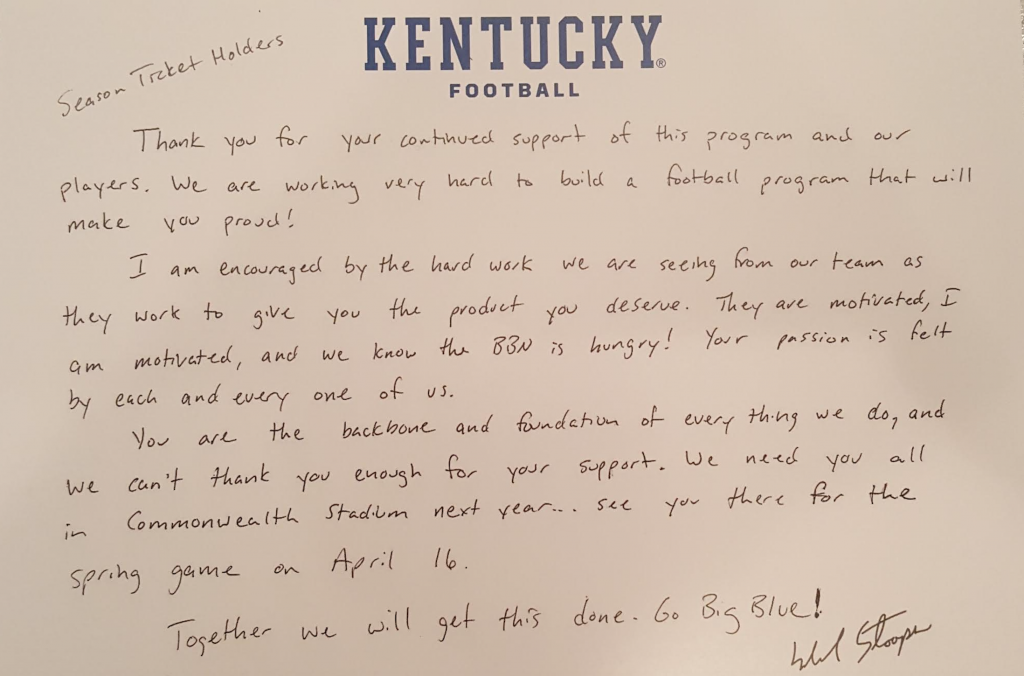 KENTUCKY®
FOOTBALL
Season Ticket Holders
Thank you for your continued support of this program and our
players. We are working very hard to build a football program that will
make you proud!
I am encouraged by the hard work we are seeing from our team as
they work to give you the product you deserve. They are motivated, I
am motivated, and we know the BBN is hungry! Your passion is felt
by each and every one of us.
You are the backbone and foundation of every thing we do, and
we can't thank you enough for your support. We need you all
in Commonwealth Stadium next year... see you there for the
spring game on April 16.
Together we will get this done. Go Big Blue!
Stoops